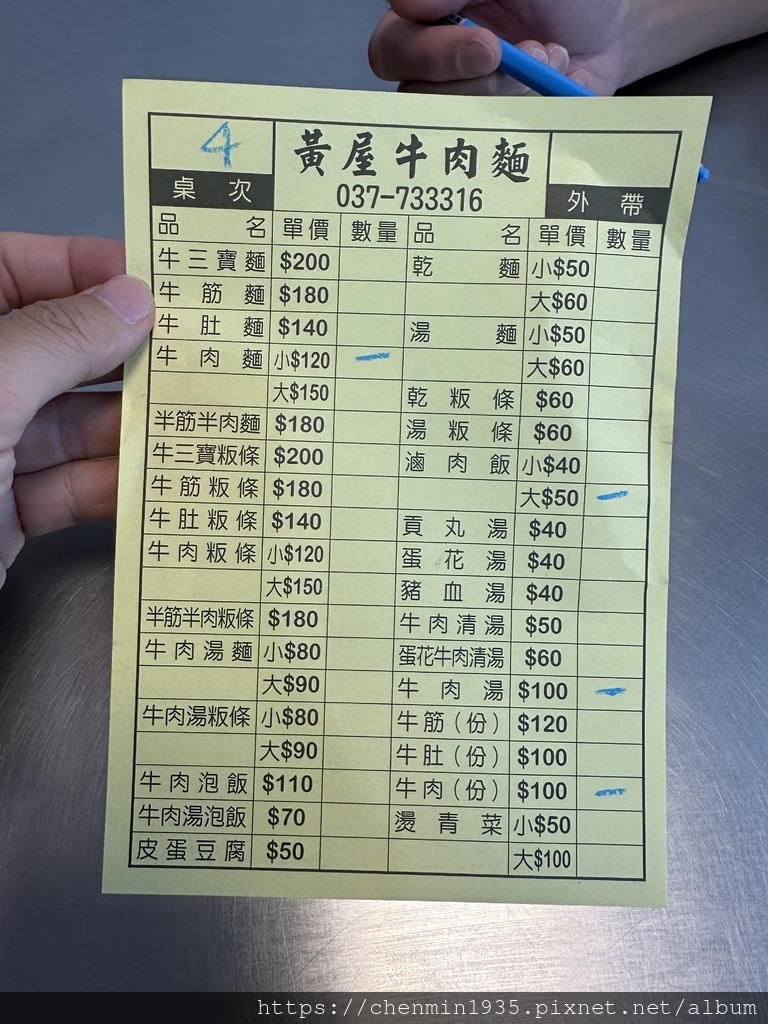 4
黃屋牛肉麵
037-733316
桌次 外帶
品名 單價 數量 品名 單價 數量
牛三寶麵 $200 乾麵 小$50
牛筋麵 $180 大$60
牛肚麵 $140 湯麵 小$50
牛肉麵 小$120 一 大$60
大$150 乾粄條 $60
半筋半肉麵 $180 湯粄條 $60
牛三寶粄條 $200 滷肉飯 小$40
牛筋粄條 $180 大$50 一
牛肚粄條 $140 貢丸湯 $40
牛肉粄條 小$120 蛋花湯 $40
大$150 豬血湯 $40
半筋半肉粄條 $180 牛肉清湯 $50
牛肉湯麵 小$80 蛋花牛肉清湯 $60
大$90 牛肉湯 $100 一
牛肉湯粄條 小$80 牛筋(份) $120
大$90 牛肚(份) $100
牛肉泡飯 $110 牛肉(份) $100 一
牛肉湯泡飯 $70 燙青菜 小$50
皮蛋豆腐 $50 大$100
https://chenmin1935.pixnet.net/album